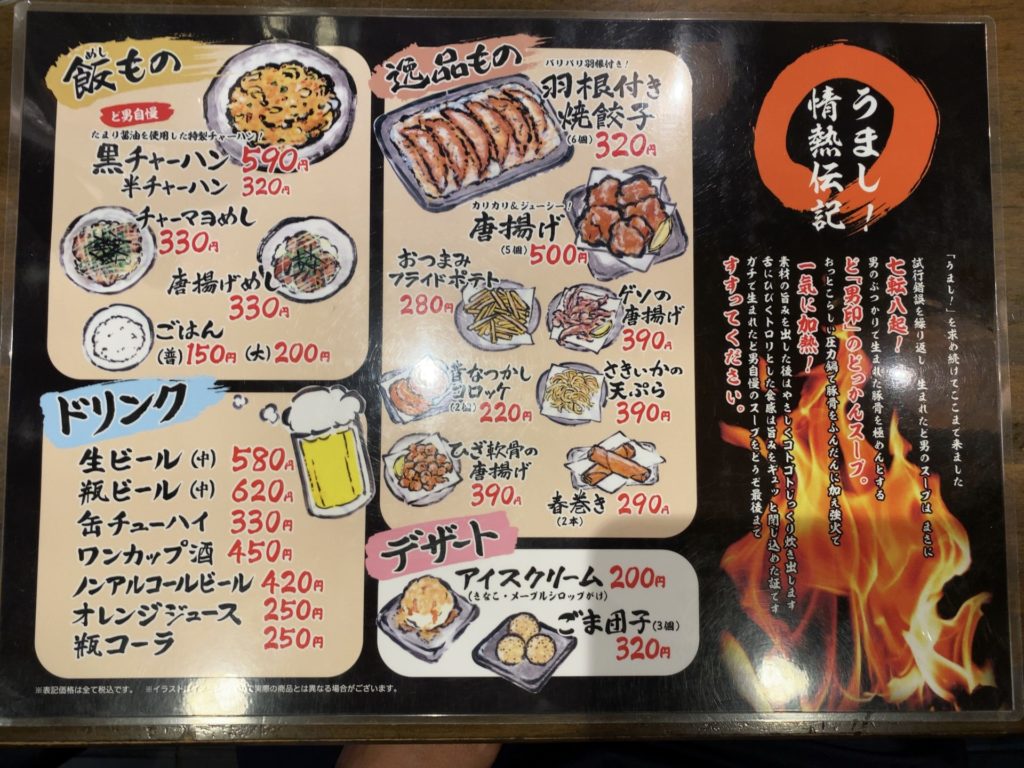 飯もの
めし
ど男自慢
たまり醤油を使用した特製チャーハン!
黒チャーハン 590円
半チャーハン 320円
チャーマヨめし
330円
唐揚げめし
330円
ごはん
(普)150円 (大)200円
ドリンク
生ビール(中) 580円
瓶ビール(中) 620円
缶チューハイ 330円
ワンカップ酒 450円
ノンアルコールビール 420円
オレンジジュース 250円
瓶コーラ 250円
※表記価格は全て税込です。
実際の商品とは異なる場合がございます。
逸品もの
パリパリ羽根付き!
羽根付き
焼餃子
(6個) 320円
カリカリ&ジューシー!
唐揚げ
(5個) 500円
おつまみ
フライドポテト
280円
ゲソの
唐揚げ
390円
昔なつかし
コロッケ
(2個) 220円
さきいかの
天ぷら
390円
ひざ軟骨の
唐揚げ
390円
春巻き 290円
(2本)
デザート
アイスクリーム 200円
(きなこ・メープルシロップがけ)
ごま団子(3個)
320円
うまし!
情熱伝記
「うまし!」を求め続けてここまで来ました
試行錯誤を繰り返し、生まれたど男のスープは まさに
七転八起!
男のぶつかりて生まれた豚骨を極めんとする
ど「男印」のどっかんスープ。
おっとこらしい圧力鍋で豚骨をふんだんに加え強火で
一気に加熱!
素材の旨みを出した後はやさしくコトコトじっくり炊き出します
舌にひびくトロリとした食感は旨みをギュッと閉じ込めた証です
ガチで生まれたど男自慢のスープをどうぞ最後まで
すすってください。